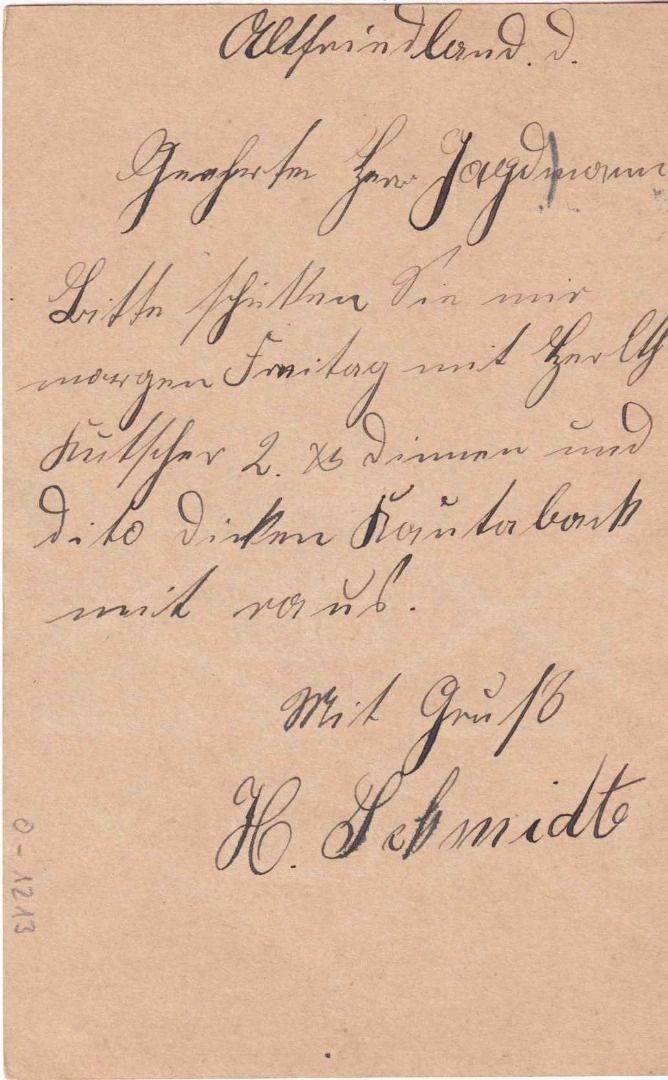 Altfriedland. d.
Geehrter Herr Jagdmann
Bitte schicken Sie mir
morgen Freitag mit
Kutscher 2. ℔ dinnen und
dito dicken Kautaback
mit raus.
Mit Gruß
H. Schmidt
0-1213